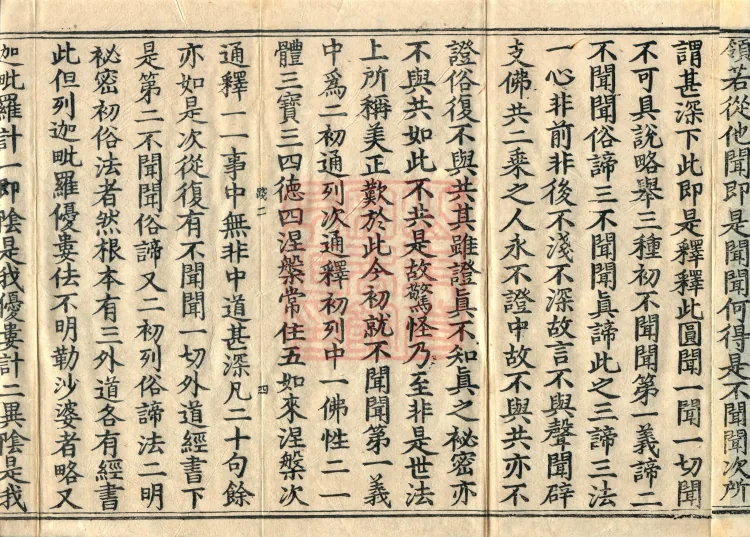 領若從他聞即是聞聞何得是不聞聞次所
謂甚深下此即是釋釋此圓聞一聞一切聞
不可具說略舉三種初不聞聞第一義諦二
不聞聞俗諦三不聞聞眞諦此之三諦三法
一心非前非後不淺不深故言不與聲聞辟
支佛共二乘之人永不證中故不與共亦不
證俗復不與共其雖證眞不知眞之祕密亦
不與共如此不共是故驚怪乃至非是世法
上所稱美正歎於此今初就不聞聞第一義
中爲二初通列次通釋初列中一佛性二一
體三寶三四德四涅槃常住五如來涅槃次
四
通釋一一事中無非中道甚深凡二十句餘
亦如是次從復有不聞聞一切外道經書下
是第二不聞聞俗諦又二初列俗諦法二明
祕密初俗法者然根本有三外道各有經書
此但列迦毗羅優婁佉不明勒沙婆者略又
迦毗羅計一即陰是我優婁計二異陰是我